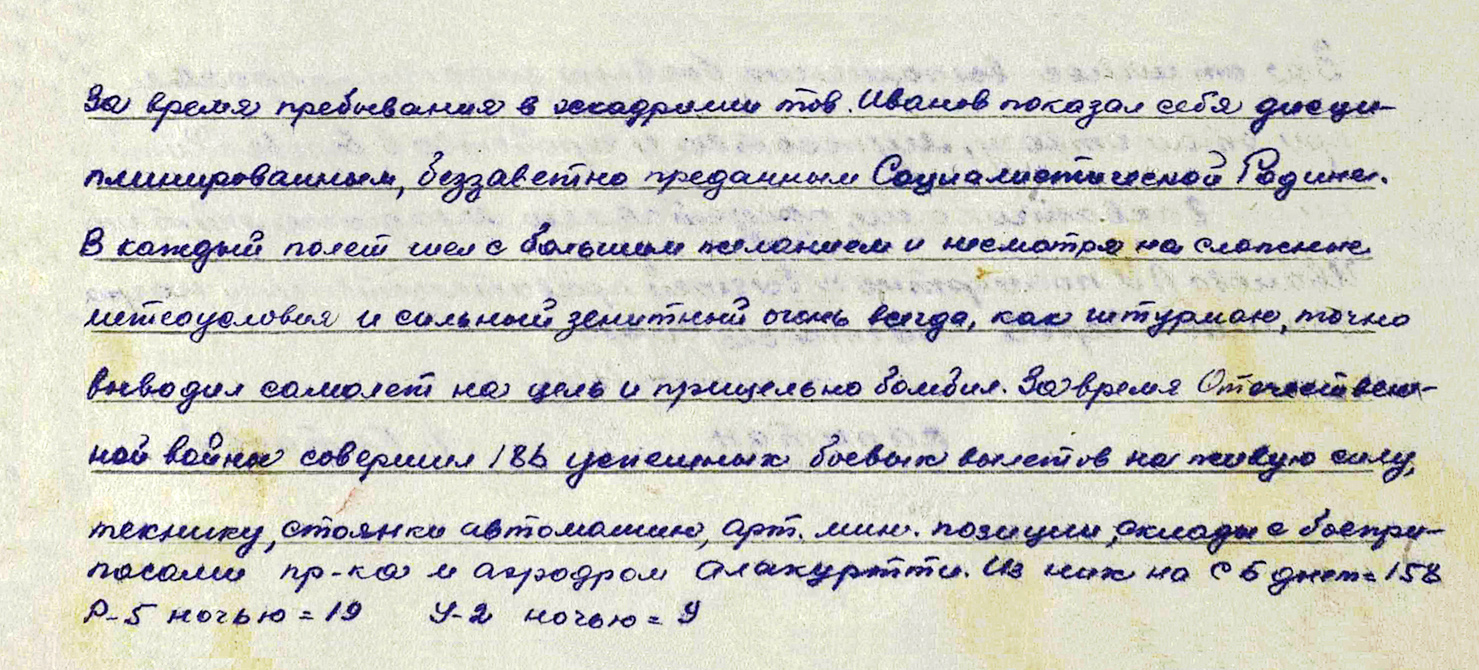 За время пребывания в эскадрилии тов. Иванов показал себя дисци-
плинированным, беззаветно преданным Социалистической Родине.
В каждый полет шел с большим желанием и несмотря на сложные
метеоусловия и сильный зенитный огонь всегда, как штурман, точно
выводил самолет на цель и прицельно бомбил. За время Отечествен-
ной войны совершил 186 успешных боевых вылетов на живую силу,
технику, стоянки автомашин, арт. мин. позиции, склады с боепри-
пасами пр-ка и аэродром Алакуртти. Из них на СБ днем = 158
Р-5 ночью = 19 У-2 ночью = 9